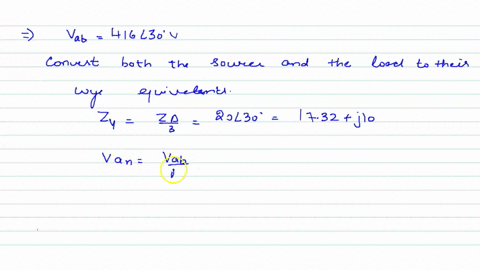 ⇒) Vab = 416∠30° v
Convert both the source and the load to their
wye equivalents.
Zy = ZΔ/3 = 20∠30° = 17.32 + j10
Van = Vab/